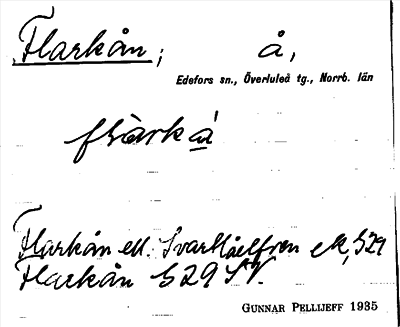 Flarkån; å,
Edefors sn., Överluleå tg., Norrb. län
flàrkå
Flarkån ell. Svartåelfven ek, S29
Flarkån S29 SV.
GUNNAR PELLIJEFF 1935